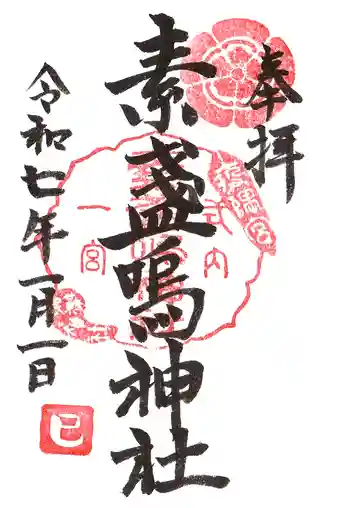 奉拝
素盞嗚神社
式内
一宮
令和七年一月一日
巳